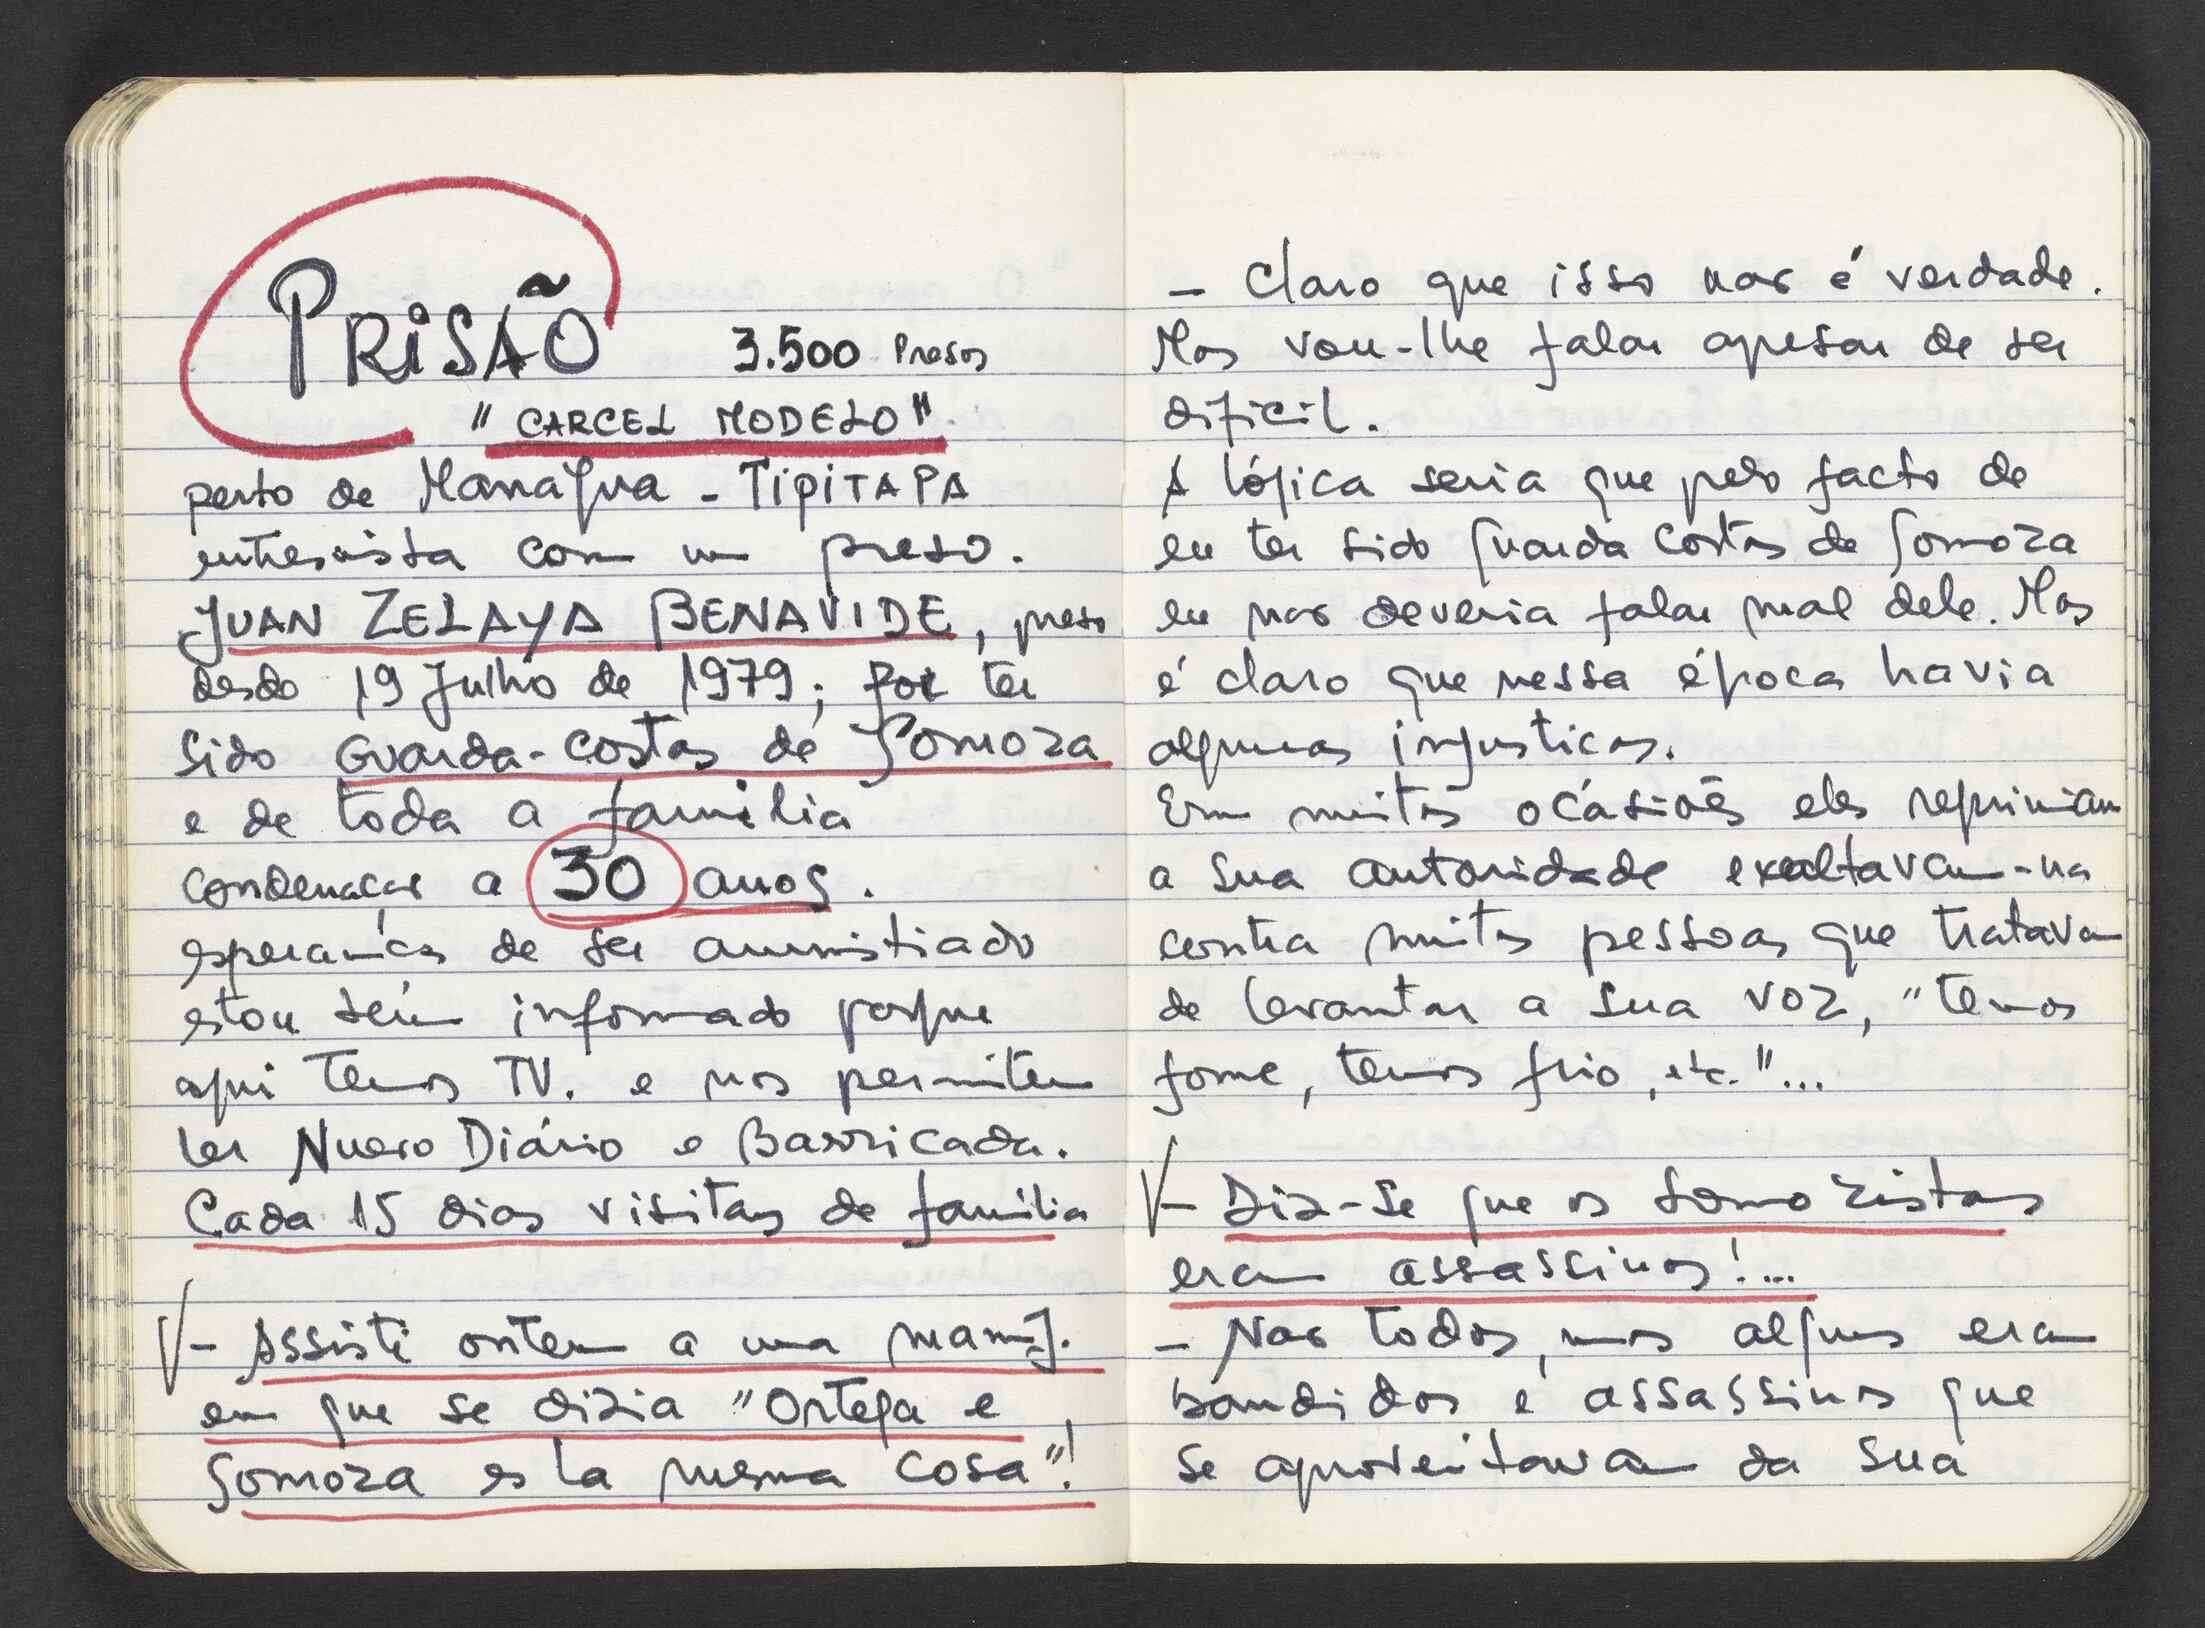 PRISÃO 3.500 Presos
"CARCEL MODELO"
perto de Managua - TIPITAPA
entrevista com um preso.
JUAN ZELAYA BENAVIDE, preso
desde 19 Julho de 1979; por ter
sido Guarda-costas de Somoza
e de toda a familia
condenação a 30 anos.
esperança de ser amnistiado
estou bem informado porque
aqui temos TV. e nos permitem
ler Nuevo Diário e Barricada.
Cada 15 dias visitas de familia
- Assisti ontem a uma manif.
em que se dizia "Ortega e
Somoza es la mesma cosa"!
- Claro que isso nao é verdade.
Mas vou-lhe falar apesar de ser
dificil.
A lógica seria que pelo facto de
eu ter sido guarda costas de Somoza
eu nao deveria falar mal dele. Mas
é claro que nessa época havia
algumas injusticas.
Em muitas ocásiões eles reprimiam
a sua autoridade exaltavam-na
contra muitas pessoas que tratavam
de levantar a sua voz, "temos
fome, temos frio, etc."...
- Diz-se que os Somozistas
eram assassinos!...
- Nao todos, mas alguns eram
bandidos e assassinos que
se aproveitavam da sua